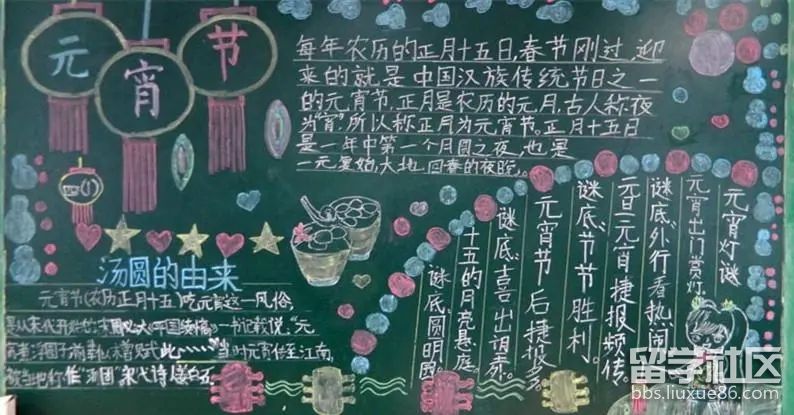 元宵节
四(1)
每年农历的正月十五日,春节刚过,迎
来的就是中国汉族传统节日之一
的元宵节。正月是农历的元月,古人称夜
为"宵",所以称正月为元宵节。正月十五日
是一年中第一个月圆之夜,也是
一元复始,大地回春的夜晚。
汤圆的由来
元宵节(农历正月十五)吃元宵这一风俗
是从宋代开始的,宋周必大《平园续稿》一书记载说,"元
宵煮浮圆子前辈似未曾赋此……"当时元宵传至江南,
元宵灯谜
元宵出门赏灯。
谜底:外行看热闹
元旦元宵捷报频传。
谜底:节节胜利。
元宵节后捷报
谜底:喜出
十五的月亮悬
谜底:圆明
留学社区
bbs.liuxue86.com